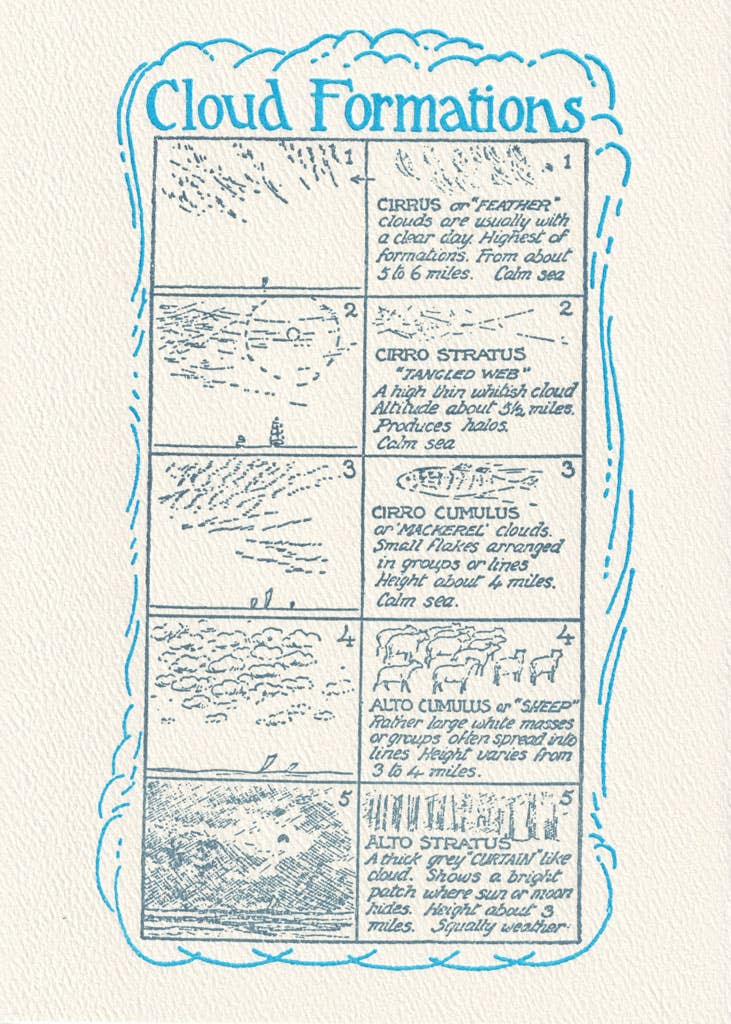 Cloud Formations
1
1
CIRRUS or "FEATHER"
clouds are usually with
a clear day. Highest of
formations. From about
5 to 6 miles. Calm sea
2
2
CIRRO STRATUS
"TANGLED WEB"
A high thin whitish cloud
Altitude about 5½ miles.
Produces halos.
Calm sea
3
3
CIRRO CUMULUS
or 'MACKEREL' clouds.
Small flakes arranged
in groups or lines
Height about 4 miles.
Calm sea.
4
4
ALTO CUMULUS or "SHEEP"
Rather large white masses
or groups often spread into
lines Height varies from
3 to 4 miles.
5
5
ALTO STRATUS
A thick grey "CURTAIN" like
cloud. Shows a bright
patch where sun or moon
hides. Height about 3
miles. Squally weather.